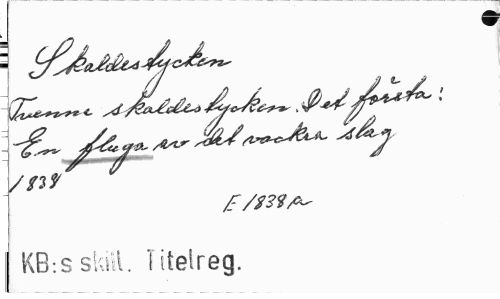 Skaldestycken
Tvenne skaldestycken. Det första:
En fluga av det vackra slag
1838
E 1838 a
KB:s skill. Titelreg.